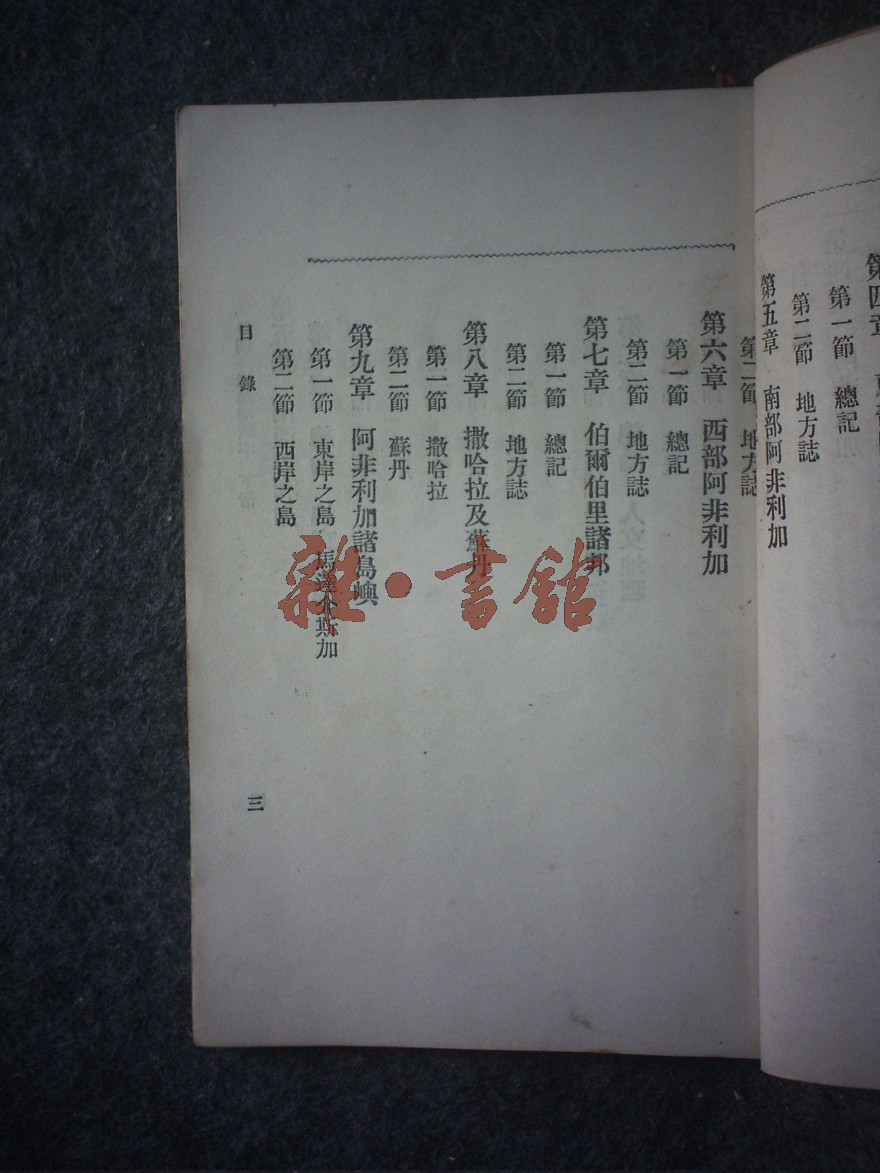 第一節 總記
第二節 地方誌
第五章 南部阿非利加
第二節 地方誌
第六章 西部阿非利加
第一節 總記
第二節 地方誌
第七章 伯爾伯里諸邦
第一節 總記
第二節 地方誌
第八章 撒哈拉及蘇丹
第一節 撒哈拉
第二節 蘇丹
第九章 阿非利加諸島嶼
第一節 東岸之島 馬達加斯加
第二節 西岸之島
目錄
三
雜·書館